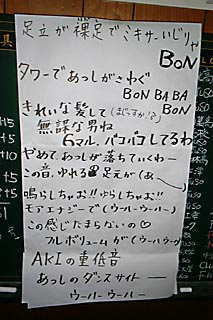 足立が裸足でミキサーいじりゃ
BON
タワーであっしがさわぐ
BON BABA
BON
きれいな髪して(まじっすか!?)
無謀な男ね
6マル、バコバコしてるわ
やめて、あっしが落ちていくわー
この音、ゆれる 足元が(あぁ〜)
鳴らしちゃお!!ゆらしちゃお!!
モアエナジーで(ウーハーウーハー)
この感じたまらないの♡
フルボリュームが(ウーハーウーハー)
AKIの重低音
あっしのダンスサイト――
ウーハーウーハー